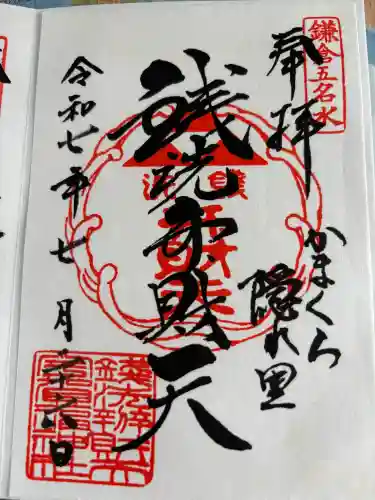 鎌倉五名水
奉拝
かまくら
隠れ里
銭洗弁財天
令和七年七月二十六日